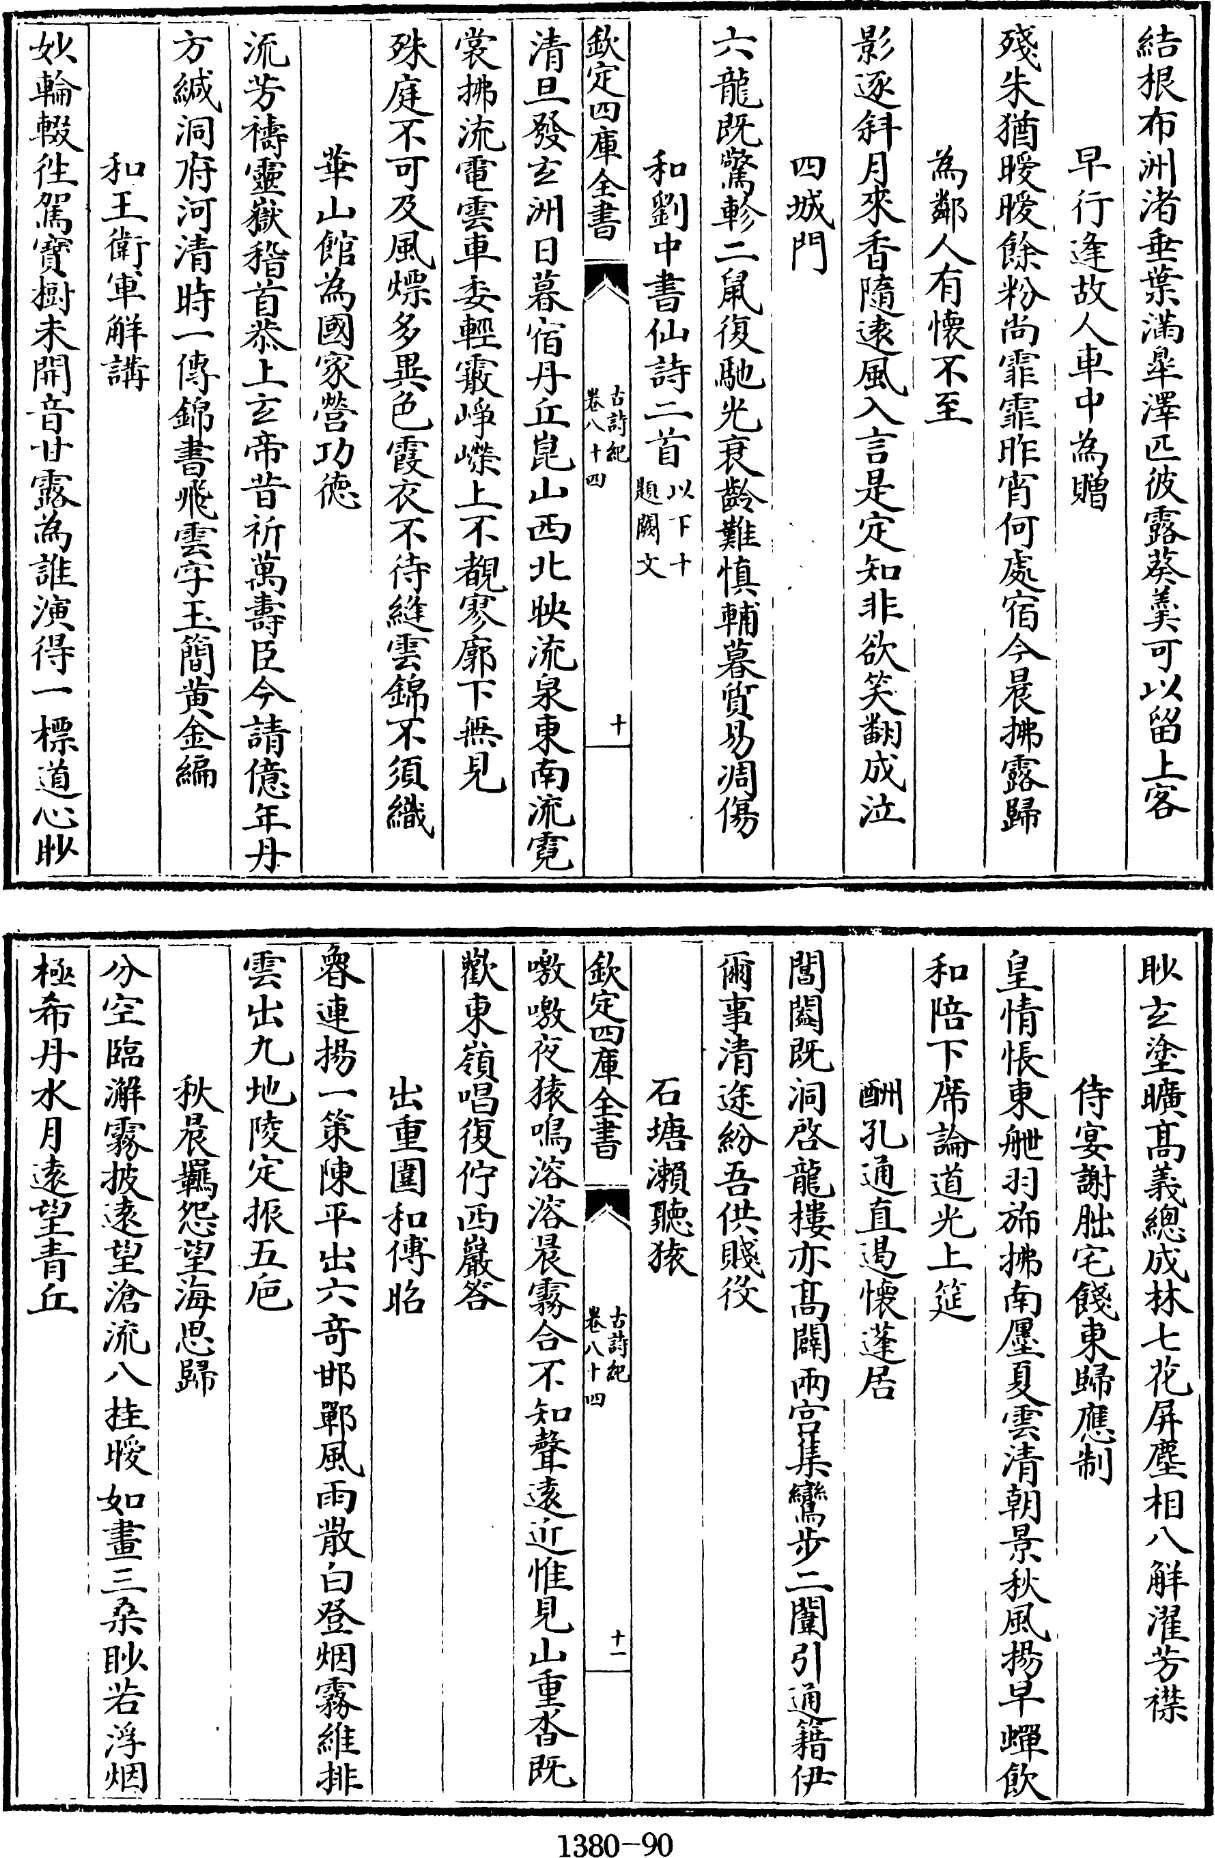 結根布洲渚垂葉滿臯澤匹彼露葵羹可以留上客
早行逢故人車中為贈
殘朱猶曖曖餘粉尚霏霏昨宵何處宿今晨拂露歸
為鄰人有懷不至
影逐斜月來香隨遠風入言是定知非欲笑翻成泣
四城門
六龍既驚軫二鼠復馳光衰齡難慎輔暮質易凋傷
和劉中書仙詩二首以下十
題闕文
欽定四庫全書
古詩紀
卷八十四
十
清旦發玄洲日暮宿丹丘崑山西北映流泉東南流霓
裳拂流電雲車委輕霰崢嶸上不覩寥廓下無見
殊庭不可及風熛多異色霞衣不待縫雲錦不須織
華山館為國家營功徳
流芳禱靈嶽稽首恭上玄帝昔祈萬壽臣今請億年丹
方緘洞府河清時一傳錦書飛雲字玉簡黄金編
和王衛軍解講
妙輪輟徃駕寶樹未開音甘露為誰演得一標道心眇
眇玄塗曠髙義總成林七花屏塵相八解濯芳襟
侍宴謝朏宅餞東歸應制
皇情悵東舣羽斾拂南㕓夏雲清朝景秋風揚早蟬飲
和陪下席論道光上筵
酬孔通直逷懷蓬居
閶闔既洞啓龍樓亦髙闢兩宫集鸞步二闈引通籍伊
爾事清途紛吾供賤役
石塘瀨聽猿
欽定四庫全書
古詩紀
卷八十四
十一
噭噭夜猿鳴溶溶晨霧合不知聲遠近惟見山重沓既
歡東嶺唱復佇西巖答
出重圍和傅昭
魯連揚一策陳平出六奇邯鄲風雨散白登烟霧維排
雲出九地陵定振五巵
秋晨羈怨望海思歸
分空臨澥霧披遠望滄流八桂曖如畫三桑眇若浮烟
極希丹水月遠望青丘
1380-90